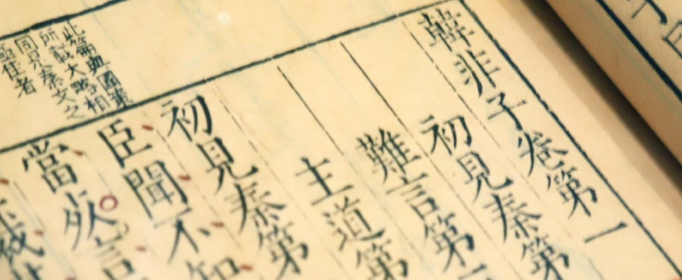 韓非子卷第一
初見秦第
難言第
主道第
初見秦第
臣聞不知
當死言
此篇與國策
所載大略相
同秦文之
極佳者